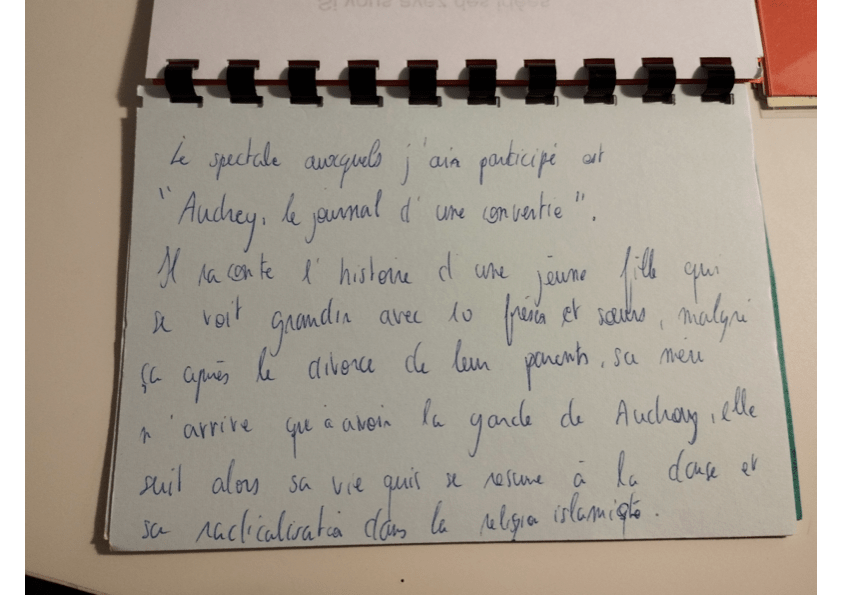 Si vous avez des frises
Le spectale auxquels j'ain participé est
"Audrey, le journal d'une convertie".
Il raconte l'histoire d'une jeune fille qui
se voit grandir avec 10 frères et soeurs, malgré
ça après le divorce de leur parents, sa mère
n'arrive que à avoir la garde de Audrey, elle
suit alors sa vie quis se resume à la danse et
sa radicalisation dans la religion islamiqte.